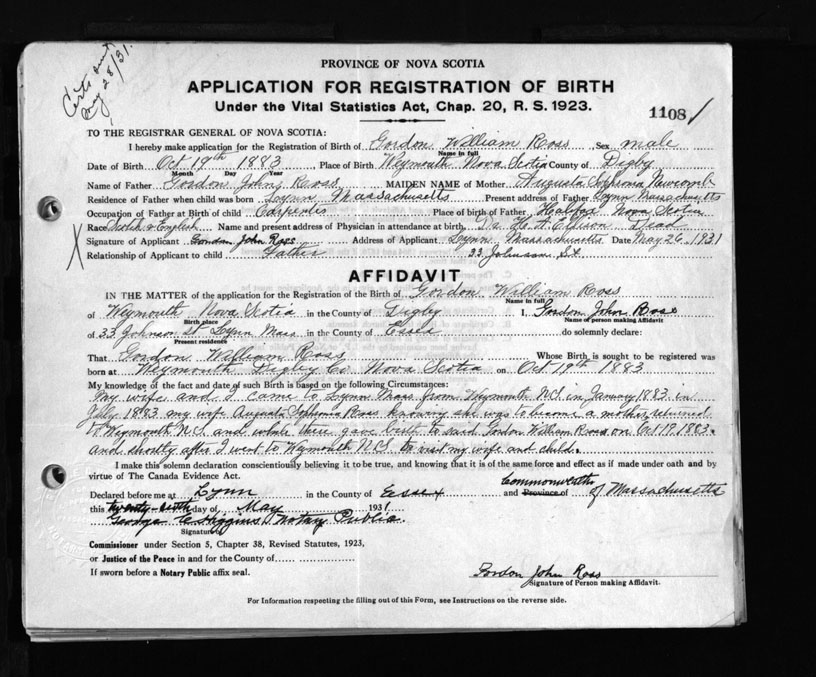 Certs sent
May 28/31.
PROVINCE OF NOVA SCOTIA
APPLICATION FOR REGISTRATION OF BIRTH
Under the Vital Statistics Act, Chap. 20, R. S. 1923.
1108 /
TO THE REGISTRAR GENERAL OF NOVA SCOTIA:
I hereby make application for the Registration of Birth of Gordon William Ross Sex male
Name in full
Date of Birth Oct 19th 1883 Place of Birth Weymouth Nova Scotia County of Digby
Month Day Year
Name of Father Gordon John Ross MAIDEN NAME of Mother Augusta Sophronia Newcomb
Residence of Father when child was born Lynn Massachusetts Present address of Father Lynn Massachusetts
Occupation of Father at Birth of child Carpenter Place of birth of Father Halifax Nova Scotia
Race Scotch & English Name and present address of Physician in attendance at birth Dr. H. A. Dead
Signature of Applicant Gordon John Ross Address of Applicant Lynn Massachusetts Date May 26 1931
Relationship of Applicant to child Father 33 Johnson St
X
AFFIDAVIT
IN THE MATTER of the application for the Registration of the Birth of Gordon William Ross
Name in full
of Weymouth Nova Scotia in the County of Digby I, Gordon John Ross
Birth place Name of person making Affidavit
of 33 Johnson St Lynn Mass. in the County of Essex do solemnly declare:
Present residence
That Gordon William Ross Whose Birth is sought to be registered was
born at Weymouth Digby Co Nova Scotia on Oct 19th 1883
My knowledge of the fact and date of such Birth is based on the following Circumstances:
My wife and I came to Lynn Mass from Weymouth N.S. in January 1883 in
July 1883 my wife Augusta Sophronia Ross knowing she was to become a mother returned
to Weymouth N.S. and while there gave birth to said Gordon William Ross on Oct 19 1883.
and shortly after I went to Weymouth N.S. to visit my wife and child.
I make this solemn declaration conscientiously believing it to be true, and knowing that it is of the same force and effect as if made under oath and by
virtue of The Canada Evidence Act.
Declared before me at Lynn in the County of Essex and Province of Commonwealth of Massachusetts
this twenty-sixth day of May 1931
George C Higgins Notary Public
Signature
Commissioner under Section 5, Chapter 38, Revised Statutes, 1923,
or Justice of the Peace in and for the County of
If sworn before a Notary Public affix seal.
Gordon John Ross
Signature of Person making Affidavit.
For Information respecting the filling out of this Form, see Instructions on the reverse side.